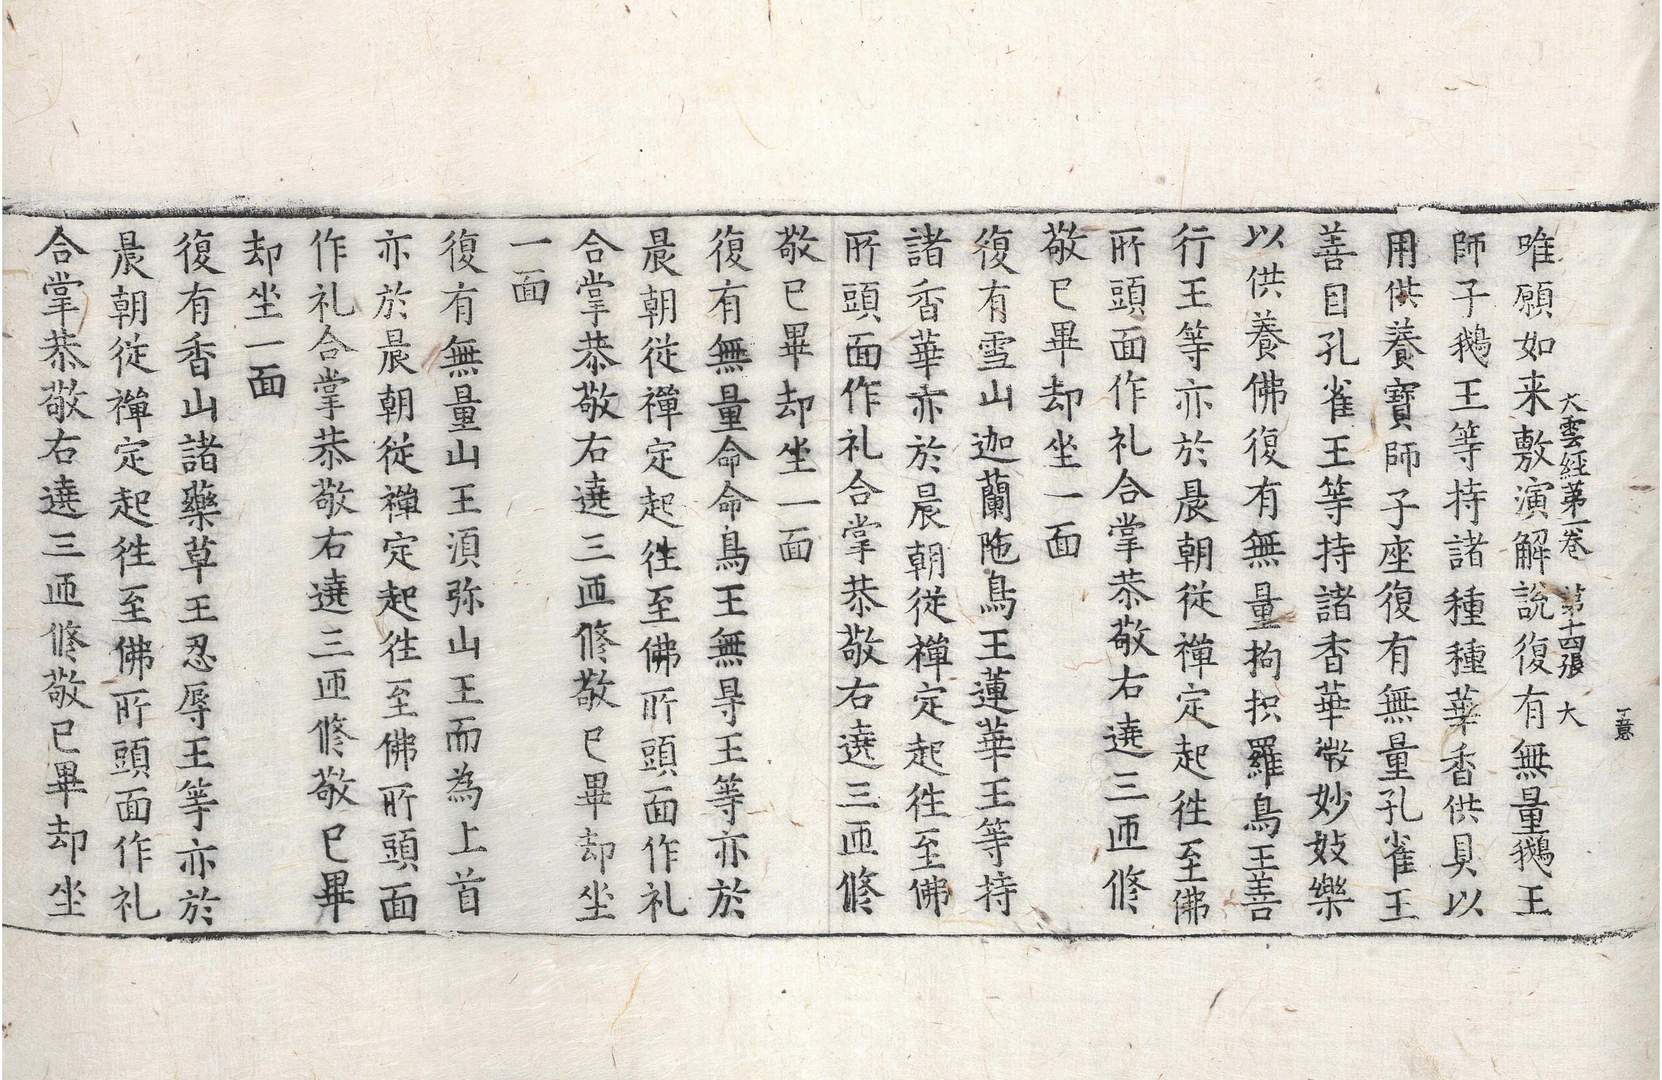 大雲經第一卷 第十四張 大
唯願如来敷演解說復有無量鵝王
師子鵝王等持諸種種華香供具以
用供養寶師子座復有無量孔雀王
善目孔雀王等持諸香華微妙妓樂
以供養佛復有無量拘抧羅鳥王善
行王等亦於晨朝從禪定起徃至佛
所頭面作礼合掌恭敬右遶三匝修
敬已畢却坐一面
復有雪山迦蘭陁鳥王蓮華王等持
諸香華亦於晨朝從禪定起徃至佛
所頭面作礼合掌恭敬右遶三匝修
敬已畢却坐一面
復有無量命命鳥王無㝵王等亦於
晨朝從禪定起徃至佛所頭面作礼
合掌恭敬右遶三匝修敬已畢却坐
一面
復有無量山王湏弥山王而為上首
亦於晨朝從禪定起徃至佛所頭面
作礼合掌恭敬右遶三匝修敬已畢
却坐一面
復有香山諸藥草王忍辱王等亦於
晨朝從禪定起徃至佛所頭面作礼
合掌恭敬右遶三匝修敬已畢却坐